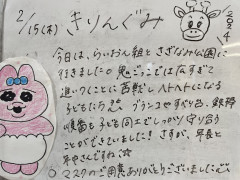 2/15(木) きりんぐみ
今日は、らいおん組とさざなみ公園に
行きました◎ 鬼ごっこでは広すぎて
追いつくことに苦戦しヘトヘトになる
子どもたち。ブランコやすべり台、鉄棒
順番も子ども同士でしっかり守り合う
ことができていました!さすが、年長と
年中さんですね☆
○マスクのご用意ありがとうございました